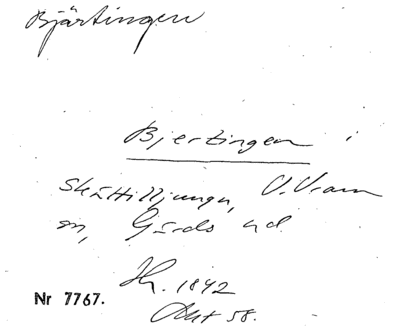 Bjärtingen
Bjertingen i
Skättilljunga, V. Vram
sn, Gärds hd
Hr. 1842
Akt 58.
Nr 7767.